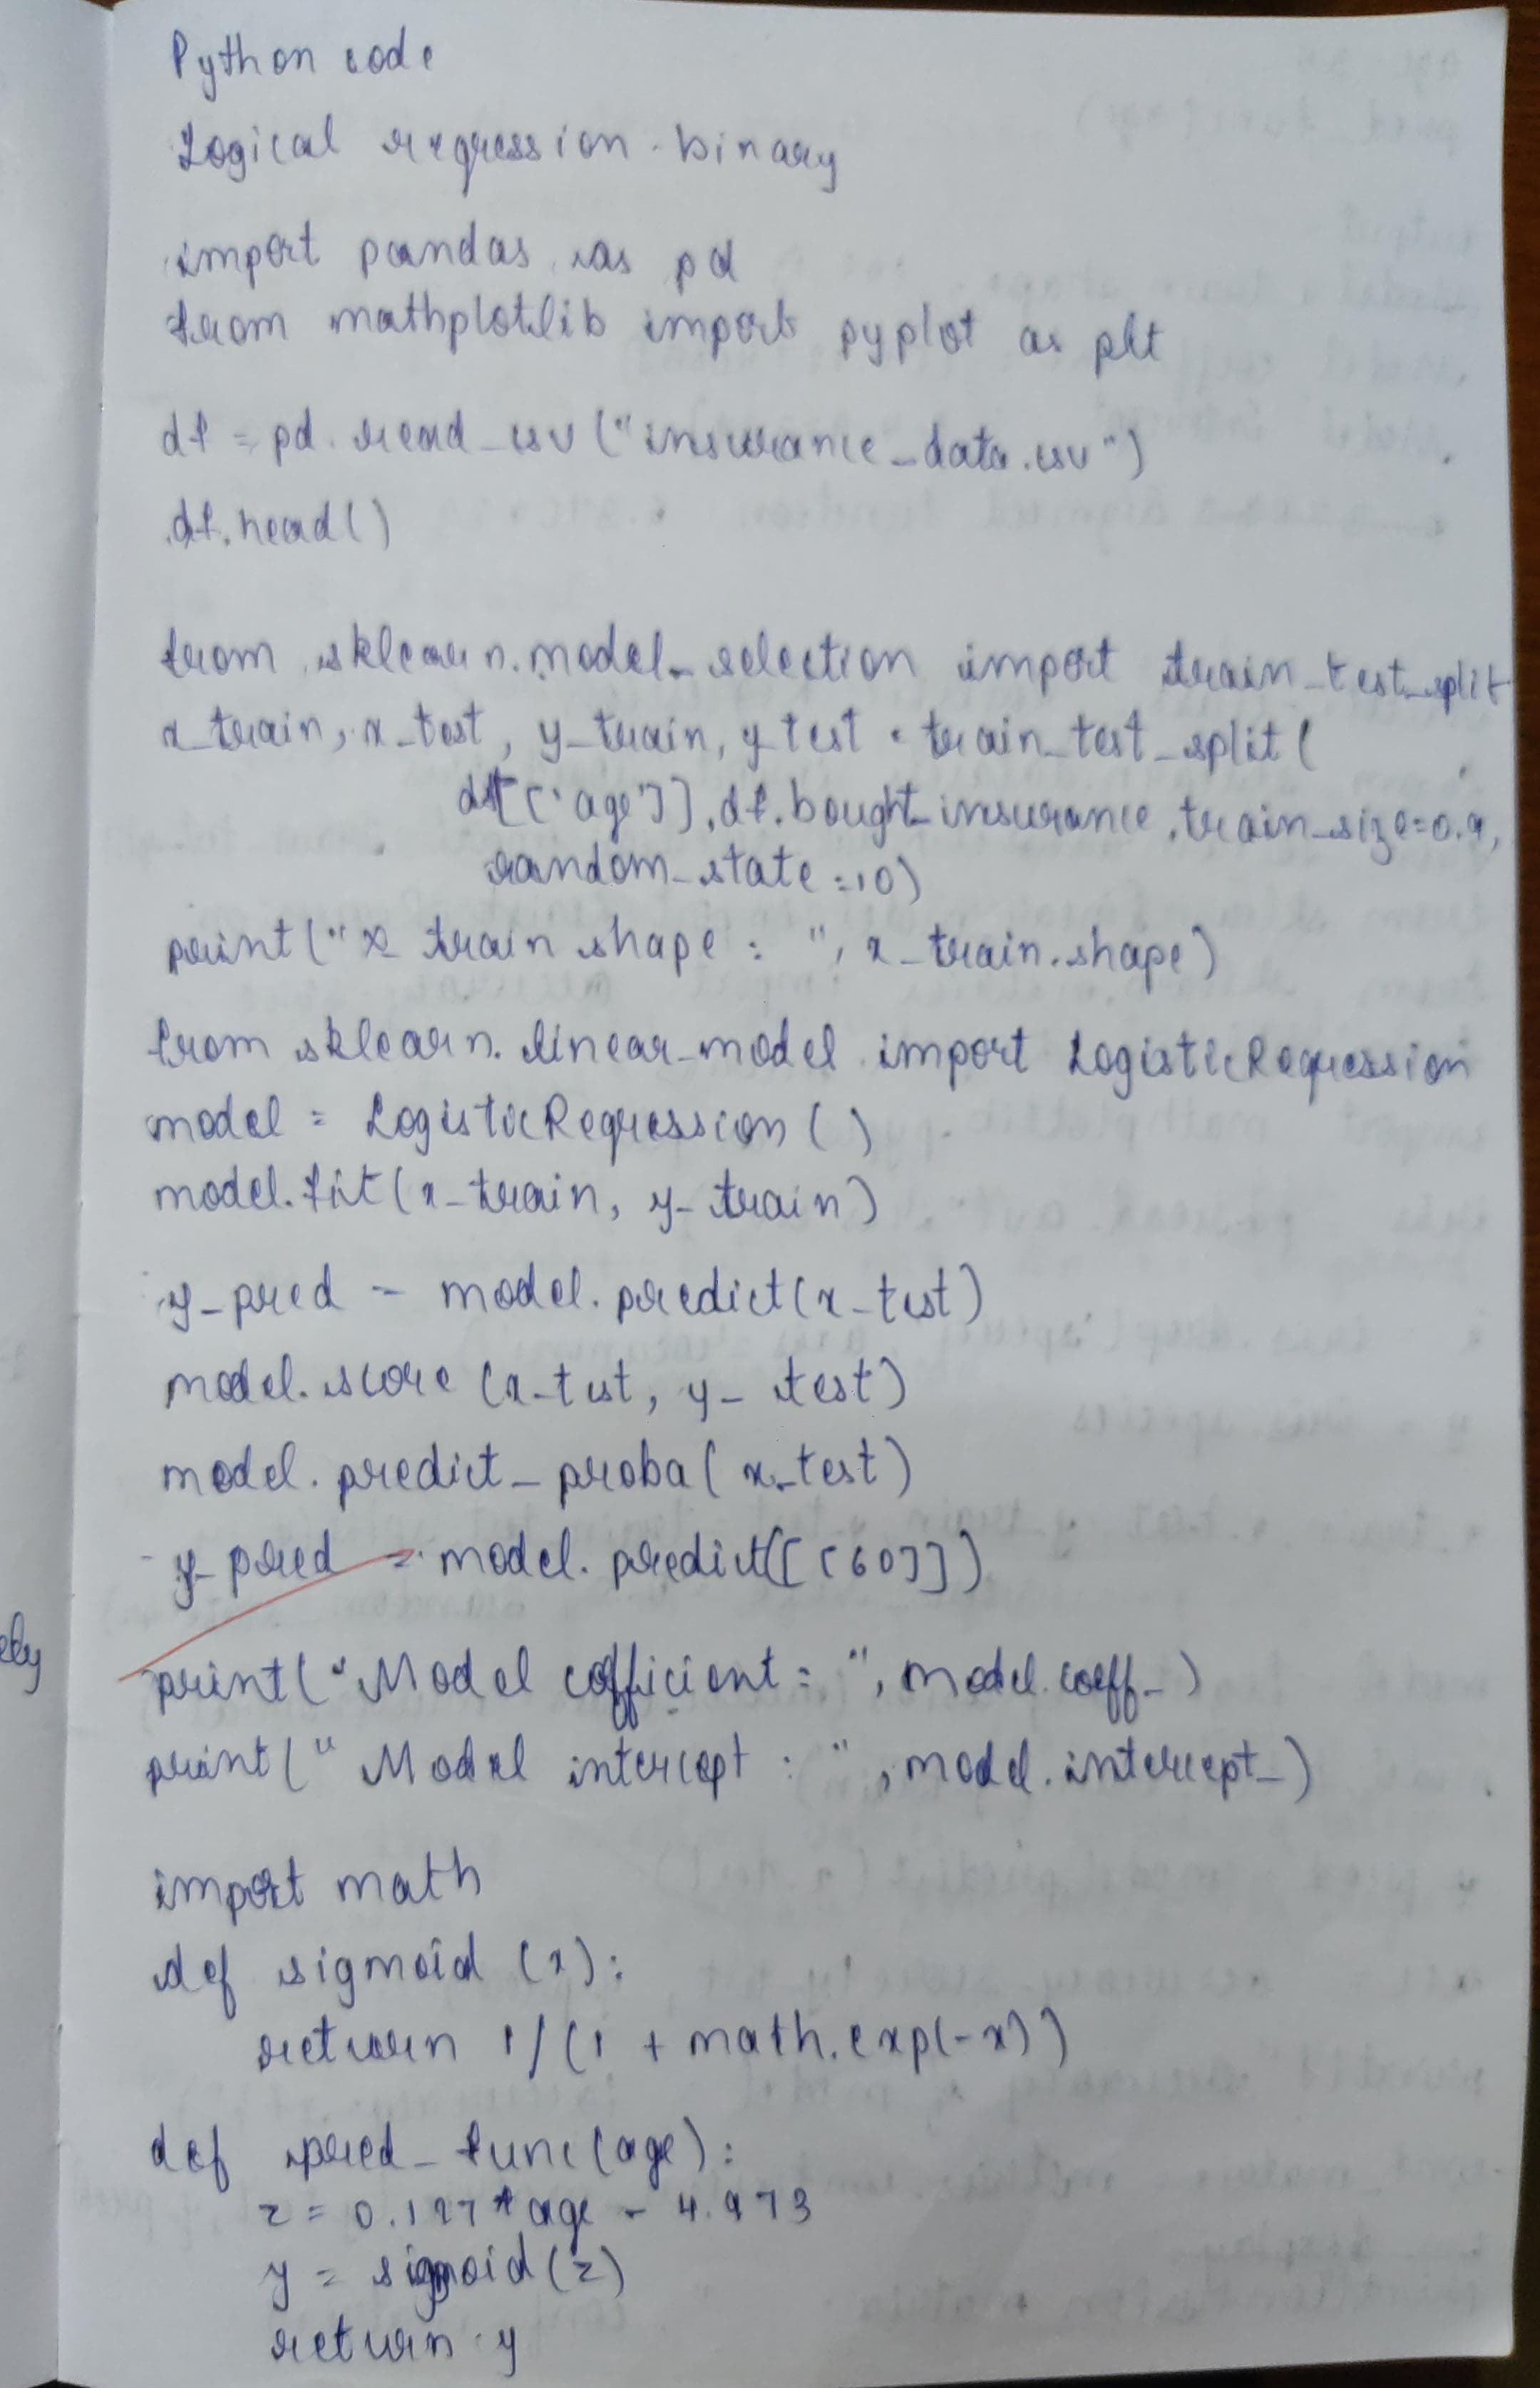 Python code
Logical regression - binary
import pandas as pd
from mathplotlib import pyplot as plt
df = pd.read_csv("insurance_data.csv")
df.head()
from sklearn.model_selection import train_test_split
x_train, x_test, y_train, y_test = train_test_split(
df[['age']], df.bought_insurance, train_size=0.9,
random_state=10)
print("x train shape : ", x_train.shape)
from sklearn.linear_model import LogisticRegression
model = LogisticRegression()
model.fit(x_train, y_train)
y_pred = model.predict(x_test)
model.score(x_test, y_test)
model.predict_proba(x_test)
y_pred = model.predict([[60]])
print("Model cofficient = ", model.coeff_)
print("Model intercept : ", model.intercept_)
import math
def sigmoid (x):
return 1/(1 + math.exp(-x))
def pred_func(age):
z = 0.127 * age - 4.973
y = sigmoid(z)
return y